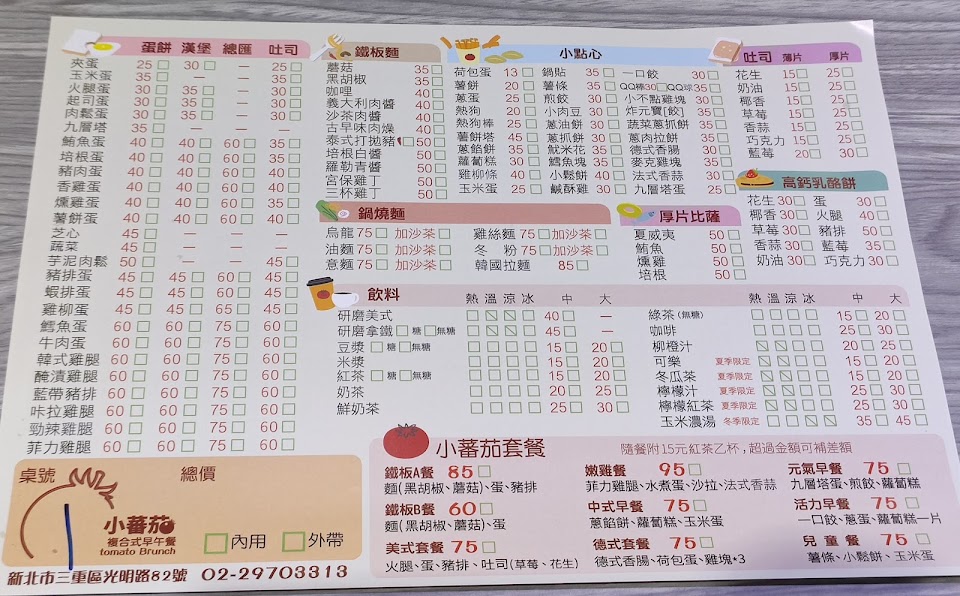 蛋餅 漢堡 總匯 吐司
夾蛋 25 30 — 25
玉米蛋 35 — — 35
火腿蛋 30 35 — 30
起司蛋 30 35 — 30
肉鬆蛋 30 35 — 30
九層塔 35 — — —
鮪魚蛋 40 40 60 35
培根蛋 40 40 60 40
豬肉蛋 40 40 60 40
香雞蛋 40 40 60 40
燻雞蛋 40 40 60 40
薯餅蛋 40 40 60 40
芝心 45 — — —
蔬菜 45 — — —
芋泥肉鬆 50 — — 45
豬排蛋 45 45 60 45
蝦排蛋 45 45 60 45
雞柳蛋 45 45 65 45
鱈魚蛋 60 60 75 60
牛肉蛋 60 60 75 60
韓式雞腿 60 60 75 60
醃漬雞腿 60 60 75 60
藍帶豬排 60 60 75 60
咔拉雞腿 60 60 75 60
勁辣雞腿 60 60 75 60
菲力雞腿 60 60 75 60
鐵板麵
蘑菇 35
黑胡椒 35
咖哩 40
義大利肉醬 40
沙茶肉醬 40
古早味肉燥 40
泰式打拋豬 50
培根白醬 50
羅勒青醬 50
宮保雞丁 50
三杯雞丁 50
小點心
荷包蛋 13 鍋貼 35 一口餃 30
薯餅 20 薯條 35 QQ棒30 QQ球35
蔥蛋 25 煎餃 30 小不點雞塊 30
熱狗 20 小肉豆 30 炸元寶[餃] 35
熱狗棒 25 蔥油餅 30 蔬菜蔥抓餅 35
薯餅塔 45 蔥抓餅 30 蔥肉拉餅 35
蔥餡餅 35 魷米花 35 德式香腸 30
蘿蔔糕 30 鱈魚塊 35 麥克雞塊 35
雞柳條 40 小鬆餅 40 法式香蒜 30
玉米蛋 25 鹹酥雞 30 九層塔蛋 30
吐司 薄片 厚片
花生 15 25
奶油 15 25
椰香 15 25
草莓 15 25
香蒜 15 25
巧克力 15 25
藍莓 20 30
高鈣乳酪餅
花生 30 蛋 30
椰香 30 火腿 40
草莓 30 豬排 50
香蒜 30 藍莓 35
奶油 30 巧克力 30
鍋燒麵
烏龍 75 加沙茶 雞絲麵 75 加沙茶
油麵 75 加沙茶 冬 粉 75 加沙茶
意麵 75 加沙茶 韓國拉麵 85
厚片比薩
夏威夷 50
鮪魚 50
燻雞 50
培根 50
飲料 熱 溫 涼 冰 中 大
研磨美式 40 —
研磨拿鐵 糖 無糖 45 —
豆漿 糖 無糖 15 20
米漿 15 20
紅茶 糖 無糖 15 20
奶茶 20 25
鮮奶茶 25 30
熱 溫 涼 冰 中 大
綠茶(無糖) 15 20
咖啡 25 30
柳橙汁 20 25
可樂 夏季限定 15 20
冬瓜茶 夏季限定 15 20
檸檬汁 夏季限定 25 30
檸檬紅茶 夏季限定 15 20
玉米濃湯 冬季限定 35 45
小蕃茄套餐 隨餐附15元紅茶乙杯,超過金額可補差額
鐵板A餐 85
麵(黑胡椒、蘑菇)、蛋、豬排
鐵板B餐 60
麵(黑胡椒、蘑菇)、蛋
美式套餐 75
火腿、蛋、豬排、吐司(草莓、花生)
嫩雞餐 95
菲力雞腿、水煮蛋、沙拉、法式香蒜
中式早餐 75
蔥餡餅、蘿蔔糕、玉米蛋
德式套餐 75
德式香腸、荷包蛋、雞塊*3
元氣早餐 75
九層塔蛋、煎餃、蘿蔔糕
活力早餐 75
一口餃、蔥蛋、蘿蔔糕一片
兒童餐 75
薯條、小鬆餅、玉米蛋
桌號 總價
小蕃茄
複合式早午餐
tomato Brunch
內用 外帶
新北市三重區光明路82號 02-29703313